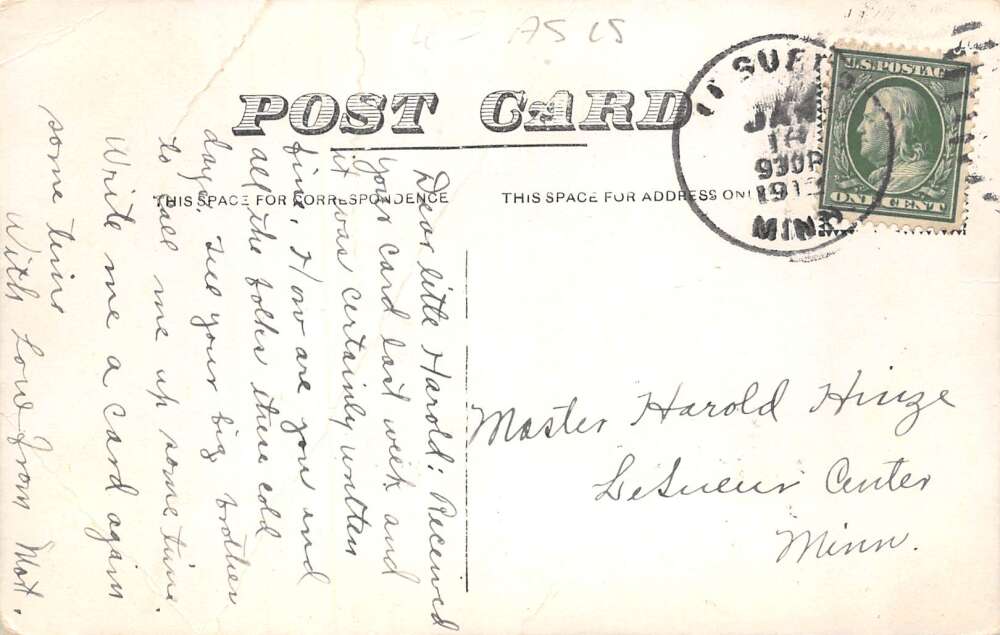 POST CARD
THIS SPACE FOR CORRESPONDENCE
THIS SPACE FOR ADDRESS ONL
U.S. POSTAG
ONE CENT
SUE
JAN
18
930P
191
MINN
Dear little Harold: Received
your card last week and
it was certainly written
fine. How are you and
all the folks these cold
days. Tell your big brother
to call me up some time.
Write me a card again
some time
With Love from
Master Harold Hinze
LeSueur Center
Minn.